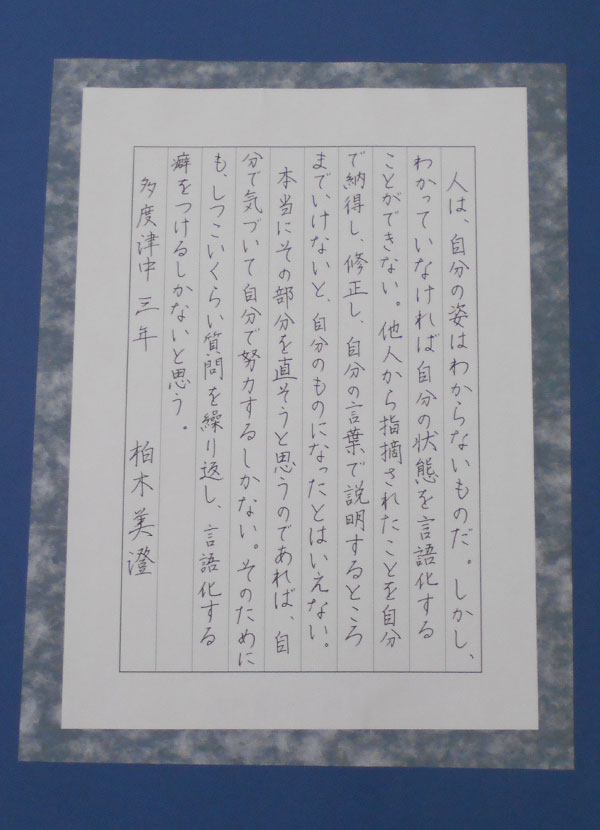 人は、自分の姿はわからないものだ。しかし、
わかっていなければ自分の状態を言語化する
ことができない。他人から指摘されたことを自分
で納得し、修正し、自分の言葉で説明するところ
までいけないと、自分のものになったとはいえない。
本当にその部分を直そうと思うのであれば、自
分で気づいて自分で努力するしかない。そのために
も、しつこいくらい質問を繰り返し、言語化する
癖をつけるしかないと思う。
多度津中 三年 柏木美澄